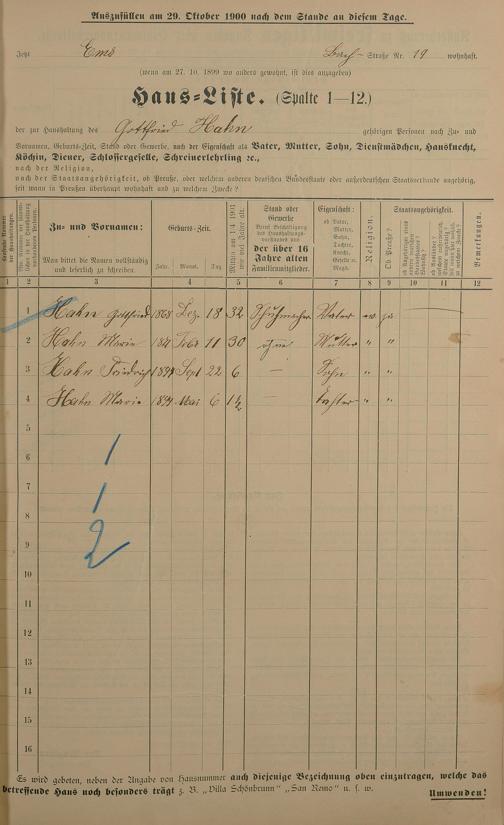 Auszufüllen am 29. Oktober 1900 nach dem Stande an diesem Tage.
Jetzt Ems Bach-Straße Nr. 19 wohnhaft.
(wenn am 27. 10. 1899 wo anders gewohnt, ist dies anzugeben)
Haus-Liste. (Spalte 1—12.)
der zur Haushaltung des Gottfried Hahn gehörigen Personen nach Zu- und
Vornamen, Geburts-Zeit, Stand oder Gewerbe, nach der Eigenschaft als Vater, Mutter, Sohn, Dienstmädchen, Hausknecht,
Köchin, Diener, Schlossergeselle, Schreinerlehrling ec.,
nach der Religion,
nach der Staatsangehörigkeit, ob Preuße, oder welchem anderen deutschen Bundesstaate oder außerdeutschen Staatsverbande angehörig,
seit wann in Preußen überhaupt wohnhaft und zu welchem Zwecke?
Zu- und Vornamen:
Man bittet die Namen vollständig und leserlich zu schreiben.
Geburts-Zeit.
Jahr. Monat. Tag
Mithin am 1/4 1901 wie viel Jahre alt.
Stand oder Gewerbe
der über 16 Jahre alten Familienmitglieder.
Eigenschaft:
ob Vater, Mutter, Sohn, Tochter, Knecht, Geselle u. Magd.
Religion.
Staatsangehörigkeit.
Ob Preuße?
Bemerkungen.
1 2 3 4 5 6 7 8 9 10 11 12
1 Hahn Gottfried 1868 Dez. 18 32 Schuhmacher Vater ev. ja
2 Hahn Marie Febr 11 30 ohne Mutter " "
3 Hahn Friedrich 1894 Sept 22 6 — Sohn " "
4 Hahn Marie 1899 Mai 6 1½ — Tochter " "
5
6 1
7
8 1
9 2
10
11
12
13
14
15
16
Es wird gebeten, neben der Angabe von Hausnummer auch diejenige Bezeichnung oben einzutragen, welche das
betreffende Haus noch besonders trägt z. B. „Villa Schönbrunn" „San Remo" u. s. w.
Umwenden!